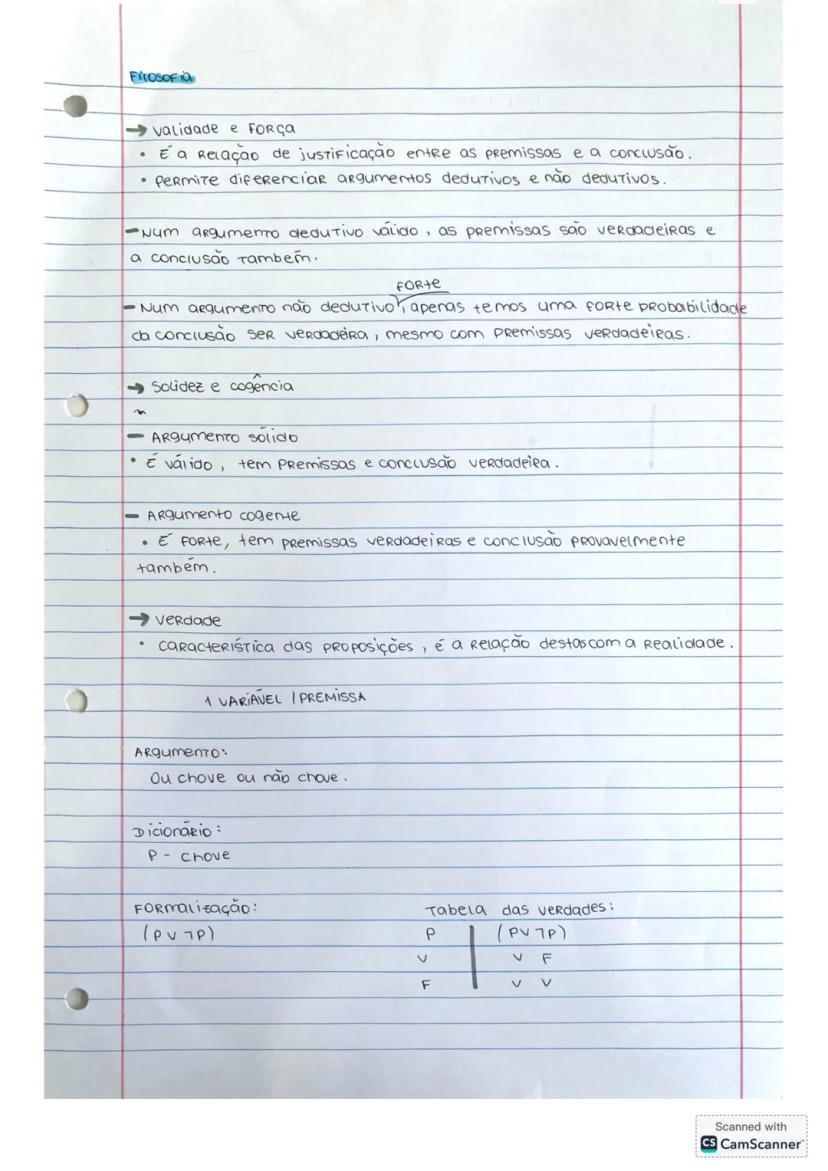 Filosofia
→ Validade e Força
• É a Relação de justificação entre as premissas e a conclusão.
• Permite diferenciar argumentos dedutivos e não dedutivos.
- Num argumento dedutivo válido, as premissas são verdadeiras e
a conclusão também.
forte
- Num argumento não dedutivo, apenas temos uma forte probabilidade
da conclusão ser verdadeira, mesmo com premissas verdadeiras.
→ Solidez e cogência
- Argumento sólido
• É válido, tem premissas e conclusão verdadeira.
- Argumento cogente
• É forte, tem premissas verdadeiras e conclusão provavelmente
também.
→ Verdade
• Característica das proposições, é a relação destas com a realidade.
1 VARIÁVEL | PREMISSA
Argumento:
Ou chove ou não chove.
Dicionário:
P - chove
Formalização: Tabela das verdades:
(P ∨ ¬P) P | (P ∨ ¬P)
V | V F
F | V V
Scanned with
CS CamScanner